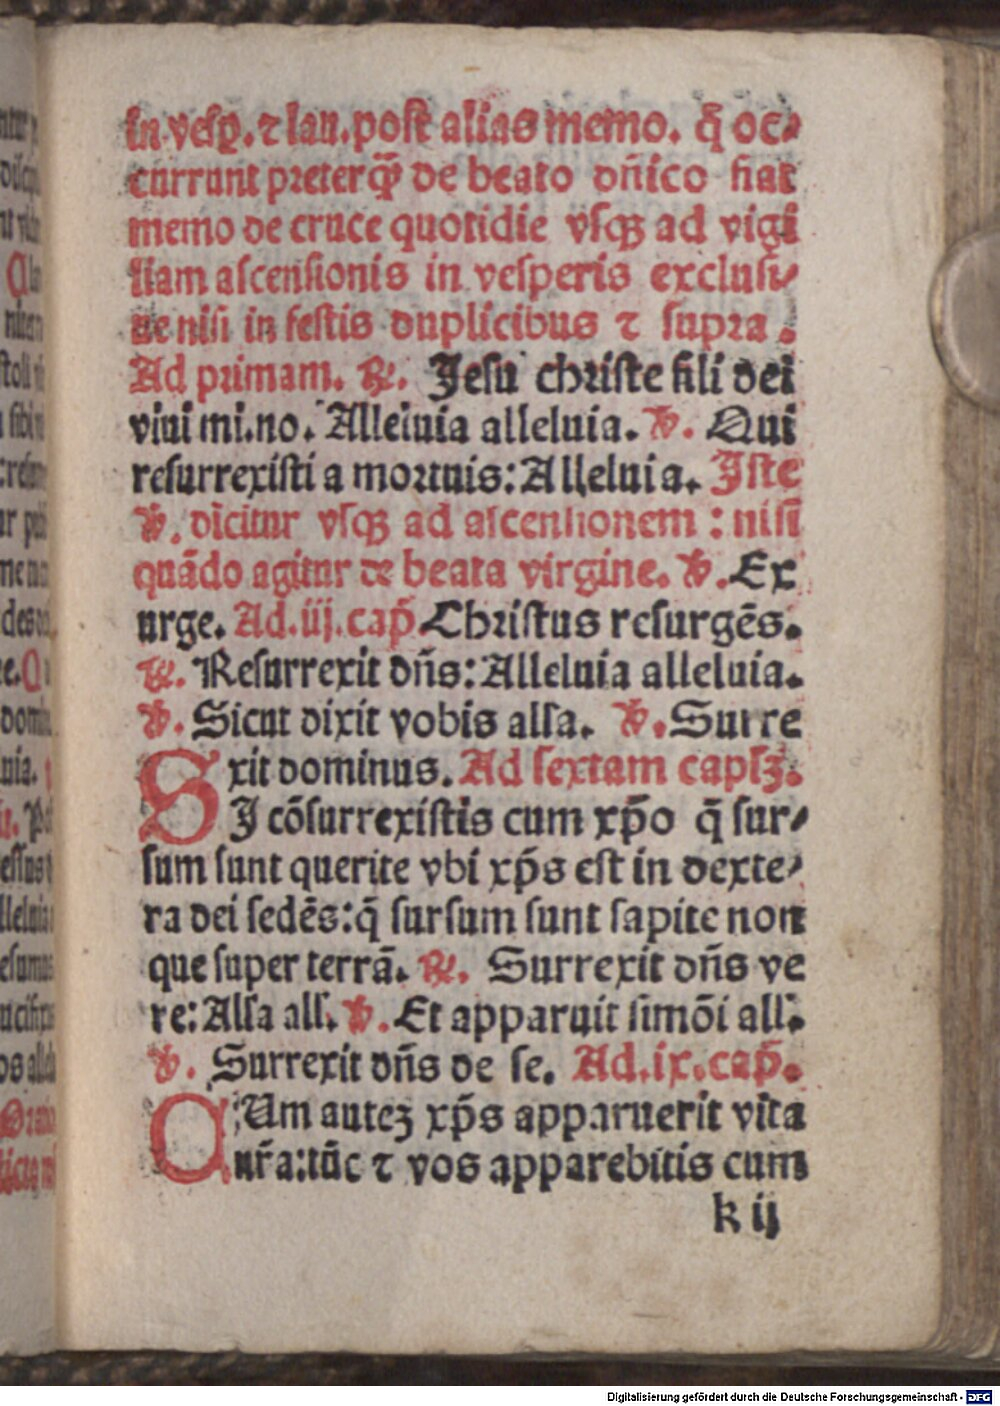 In vesp̄. ⁊ lau. post alias memo. q̄ oc⸗
currunt preterq̄ꝫ de beato dn̄ico fiat
memo de cruce quotidie vsqꝫ ad vigi
liam ascensionis in vesperis exclusi⸗
ue nisi in festis duplicibus ⁊ supra.
Ad primam. ℟. Jesu christe fili dei
viui mi.no. Alleluia alleluia. ℣. Qui
resurrexisti a mortuis: Alleluia. Iste
℣. dicitur vsqꝫ ad ascensionem: nisi
quādo agitur de beata virgine. ℣. Ex
urge. Ad .iij. cap̄. Christus resurgēs.
℟. Resurrexit dn̄s: Alleluia alleluia.
℣. Sicut dixit vobis alla. ℣. Surre
xit dominus. Ad sextam caplꝫ.
SI cōsurrexistis cum xp̄o q̄ sur⸗
sum sunt querite vbi xp̄s est in dexte⸗
ra dei sedēs: q̄ sursum sunt sapite non
que super terrā. ℟. Surrexit dn̄s ve
re: Alla all. ℣. Et apparuit simōi all.
℣. Surrexit dn̄s de se. Ad .ix. cap̄.
CUm auteꝫ xp̄s apparuerit vita
nr̄a: tūc ⁊ vos apparebitis cum
k ij
Digitalisierung gefördert durch die Deutsche Forschungsgemeinschaft - DFG